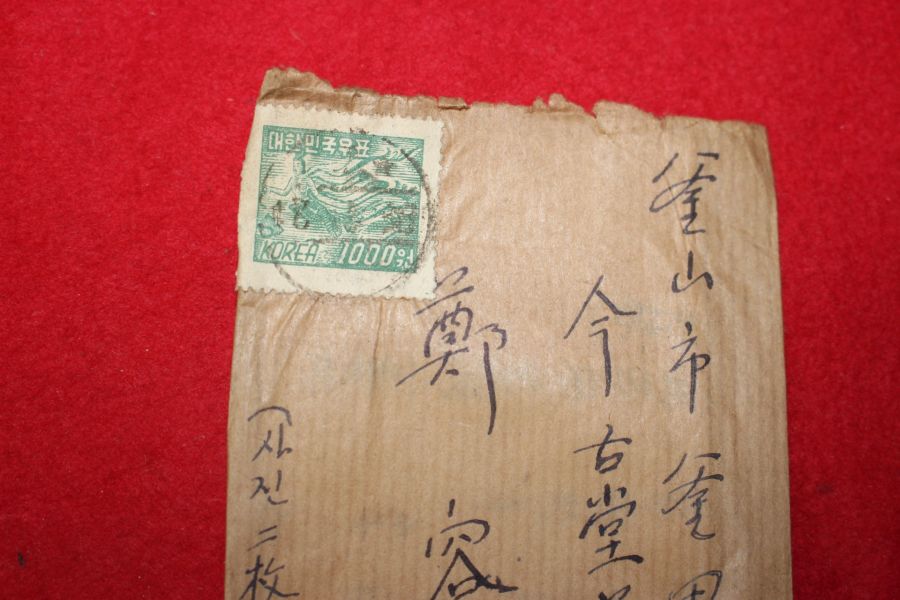 대한민국우표
KOREA 1000원
釜山市 釜
今古堂
鄭 容
(사진 二枚